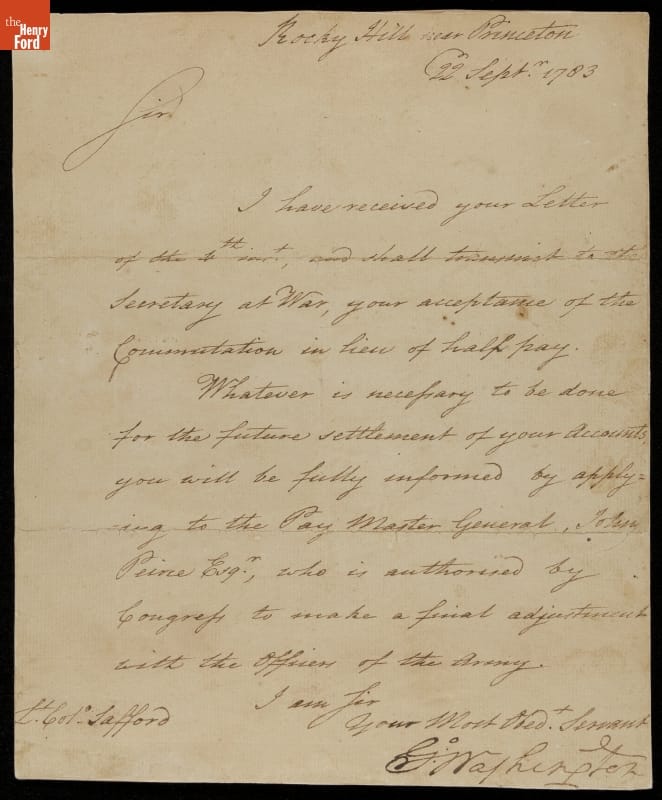 the
Henry
Ford
Rocky Hill near Princeton
22d Septr. 1783
Sir
I have received your Letter
of the 4th inst, and shall transmit to the
Secretary at War, your acceptance of the
Commutation in lieu of half pay.
Whatever is necessary to be done
for the future settlement of your Accounts,
you will be fully informed by apply=
=ing to the Pay Master General, John
Peirce Esqr., who is authorised by
Congress to make a final adjustment
with the Officers of the Army.
I am Sir
Your Most Obedt. Servant
Lt. Colo. Safford
Go. Washington